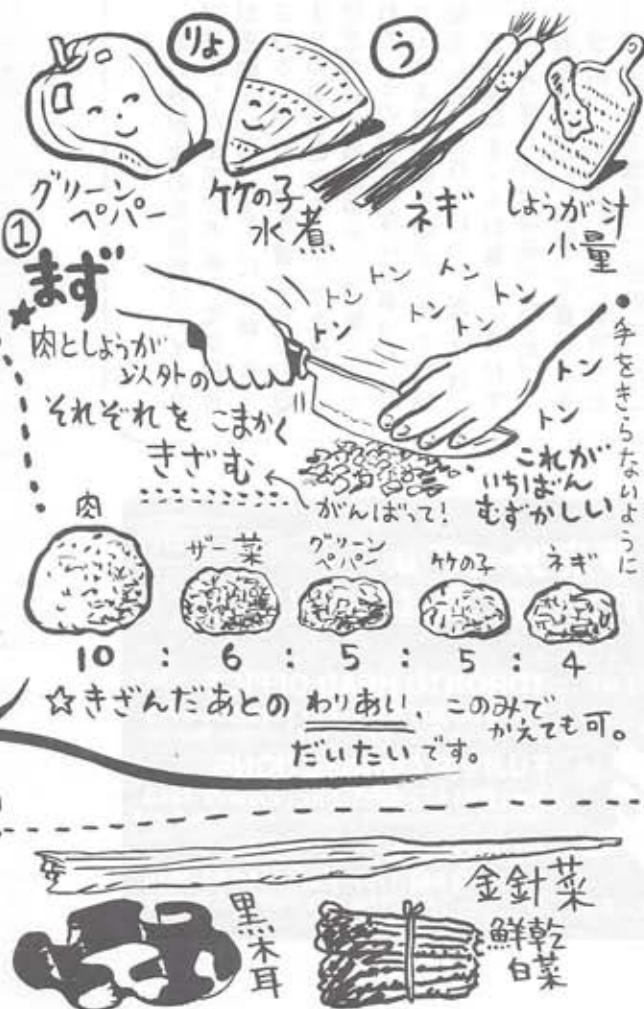 りょ
う
グリーン
ペパー
竹の子
水煮
ネギ
しょうが汁
小量
①
★まず
肉としょうが
以外の
それぞれを こまかく
きざむ
がんばって!
トン
トン
トン
トン
トン
トン
トン
トン
トン
トン
これが
いちばん
むずかしい
●手をきらないように
肉
ザー菜
グリーン
ペパー
竹の子
ネギ
10 : 6 : 5 : 5 : 4
☆きざんだあとの わりあい、このみで
かえても可。
だいたいです。
金針菜
黒木耳
鮮乾
白菜